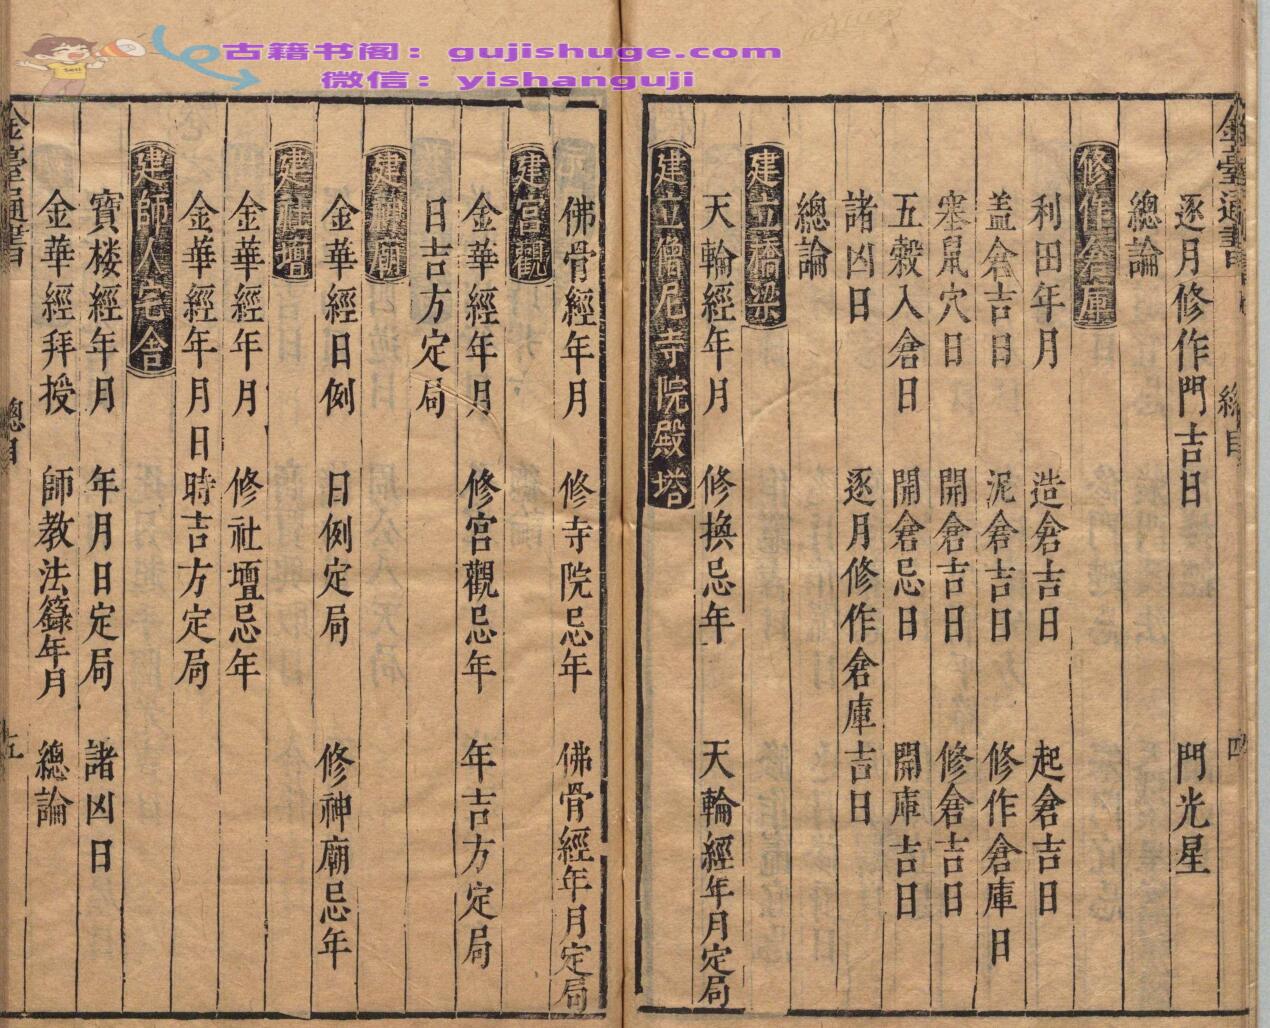 古籍书阁：gujishuge.com
微信：yishanguji
總目
四
逐月修作門吉日 門光星
總論
修作倉庫
利田年月 造倉吉日 起倉吉日
盖倉吉日 泥倉吉日 修作倉庫日
塞鼠穴日 開倉吉日 修倉吉日
五穀入倉日 開倉忌日 開庫吉日
諸凶日 逐月修作倉庫吉日
總論
建立橋梁
天輪經年月 修換忌年 天輪經年月定局
建立僧尼寺院殿塔
佛骨經年月 修寺院忌年 佛骨經年月定局
建宮觀
金華經年月 修宮觀忌年 年吉方定局
日吉方定局
建神廟
金華經日例 日例定局 修神廟忌年
建社壇
金華經年月 修社壇忌年
金華經年月日 時吉方定局
建師人宅舍
寶楼經年月 年月日定局 諸凶日
金華經拜授 師教法籙年月 總論
金臺通書
總目
五